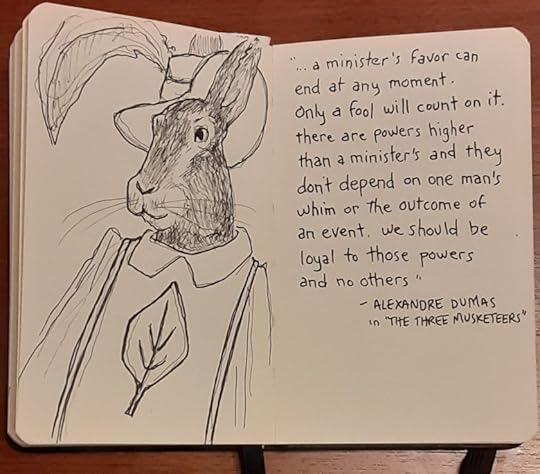 "... a minister's favor can
end at any moment.
Only a fool will count on it.
there are powers higher
than a minister's and they
don't depend on one man's
whim or the outcome of
an event. we should be
loyal to those powers
and no others"
- ALEXANDRE DUMAS
in "THE THREE MUSKETEERS"